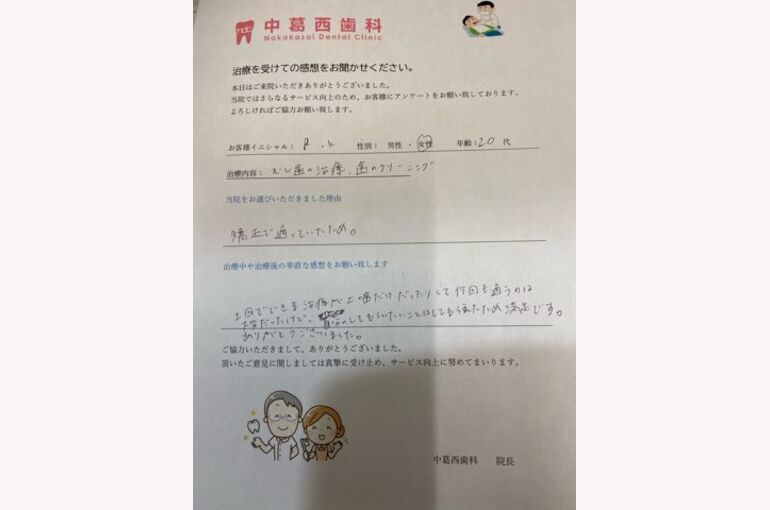 ndc 中葛西歯科
Nakakasai Dental Clinic
治療を受けての感想をお聞かせください。
本日はご来院いただきありがとうございました。
当院ではさらなるサービス向上のため、お客様にアンケートをお願い致しております。
よろしければご協力お願い致します。
お客様イニシャル： R.K 性別： 男性 ・ 女性 年齢：20 代
治療内容： むし歯の治療、歯のクリーニング
当院をお選びいただきました理由
矯正で通っていたため。
治療中や治療後の率直な感想をお願い致します
1回でできる治療が上顎だけだったりして何回も通うのは
大変だったけど、自分のしてもらいたいことはしてもらえたため満足です。
ありがとうございました。
ご協力いただきまして、ありがとうございました。
頂いたご意見に関しましては真摯に受け止め、サービス向上に努めてまいります。
中葛西歯科 院長